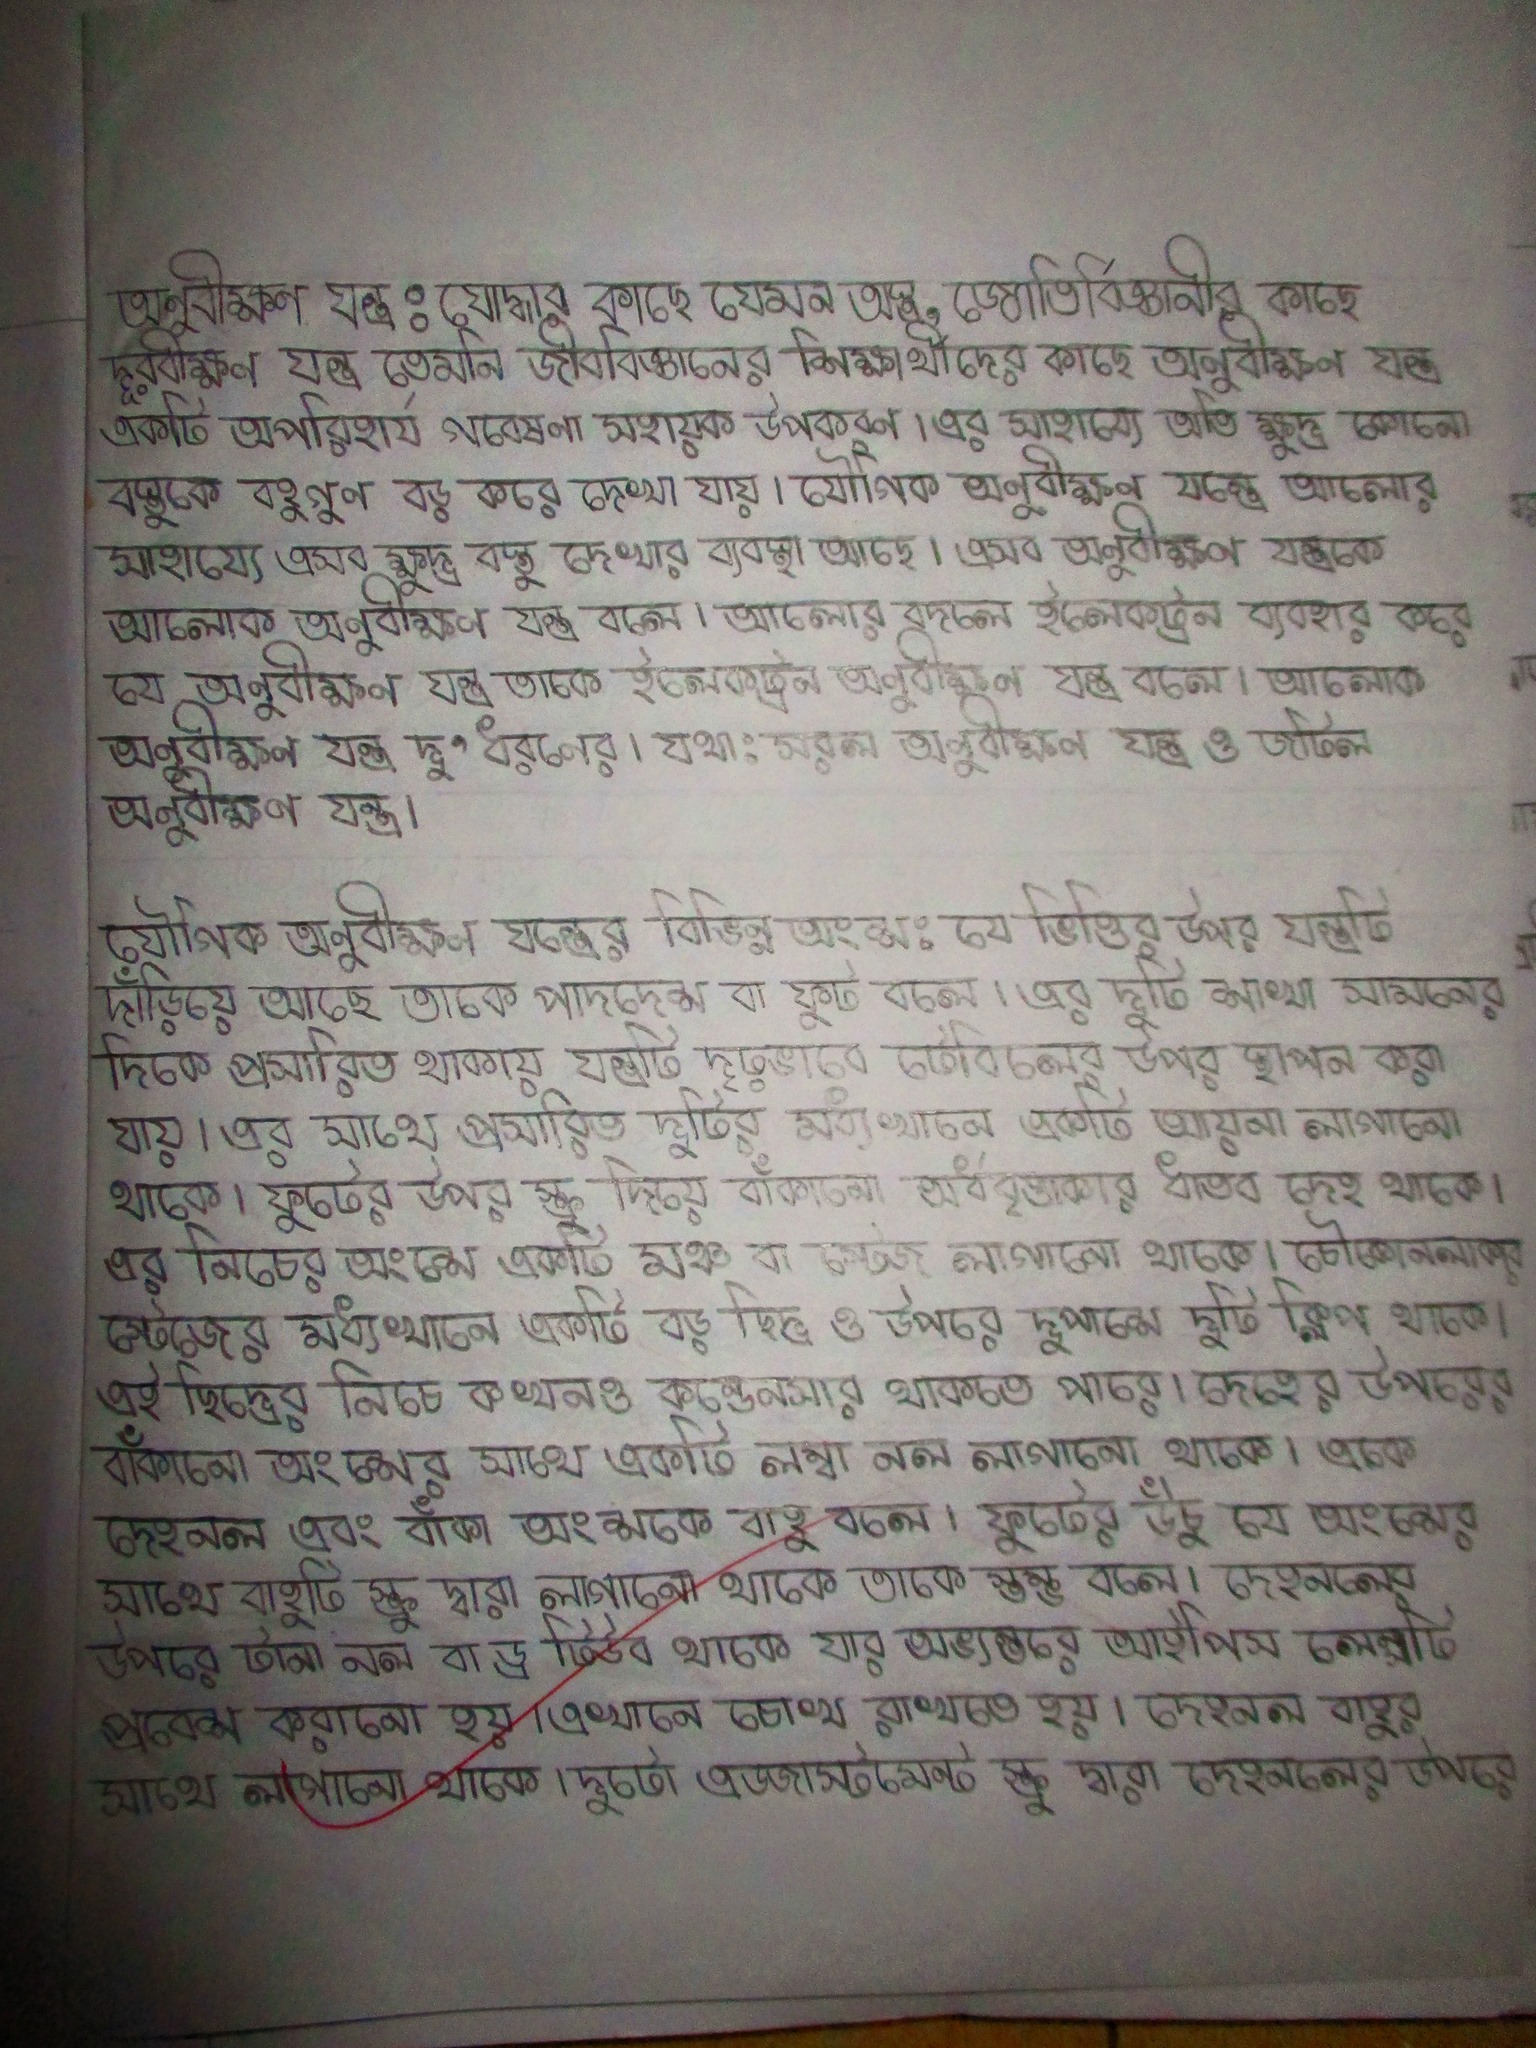 অনুবীক্ষণ যন্ত্র: যোদ্ধার কাছে যেমন অস্ত্র, জ্যোতির্বিজ্ঞানীর কাছে
দূরবীক্ষণ যন্ত্র তেমনি জীববিজ্ঞানের শিক্ষার্থীদের কাছে অনুবীক্ষণ যন্ত্র
একটি অপরিহার্য গবেষণা সহায়ক উপকরণ। এর সাহায্যে অতি ক্ষুদ্র কোনো
বস্তুকে বহুগুণ বড় করে দেখা যায়। যৌগিক অনুবীক্ষণ যন্ত্রে আলোর
সাহায্যে এসব ক্ষুদ্র বস্তু দেখার ব্যবস্থা আছে। এসব অনুবীক্ষণ যন্ত্রকে
আলোক অনুবীক্ষণ যন্ত্র বলে। আলোর বদলে ইলেকট্রন ব্যবহার করে
যে অনুবীক্ষণ যন্ত্র তাকে ইলেকট্রন অনুবীক্ষণ যন্ত্র বলে। আলোক
অনুবীক্ষণ যন্ত্র দু'ধরণের। যথা: সরল অনুবীক্ষণ যন্ত্র ও জটিল
অনুবীক্ষণ যন্ত্র।
যৌগিক অনুবীক্ষণ যন্ত্রের বিভিন্ন অংশ: যে ভিত্তির উপর যন্ত্রটি
দাঁড়িয়ে আছে তাকে পাদদেশ বা ফুট বলে। এর দুটি শাখা সামনের
দিকে প্রসারিত থাকায় যন্ত্রটি দৃঢ়ভাবে টেবিলের উপর স্থাপন করা
যায়। এর সাথে প্রসারিত দুটির মধ্যখানে একটি আয়না লাগানো
থাকে। ফুটের উপর স্ক্রু দিয়ে বাঁকানো অর্ধবৃত্তাকার ধাতব দেহ থাকে।
এর নিচের অংশে একটি মঞ্চ বা স্টেজ লাগানো থাকে। চৌকোনলাকার
স্টেজের মধ্যখানে একটি বড় ছিদ্র ও উপরে দুপাশে দুটি ক্লিপ থাকে।
এই ছিদ্রের নিচে কখনও কন্ডেনসার থাকতে পারে। দেহের উপরের
বাঁকানো অংশের সাথে একটি লম্বা নল লাগানো থাকে। একে
দেহনল এবং বাঁকা অংশকে বাহু বলে। ফুটের উঁচু যে অংশের
সাথে বাহুটি স্ক্রু দ্বারা লাগানো থাকে তাকে স্তম্ভ বলে। দেহনলের
উপরে টানা নল বা ড্র টিউব থাকে যার অভ্যন্তরে আইপিস লেন্সটি
প্রবেশ করানো হয়। এখানে চোখ রাখতে হয়। দেহনল বাহুর
সাথে লাগানো থাকে। দুটো এডজাস্টমেন্ট স্ক্রু দ্বারা দেহনলের উপরে